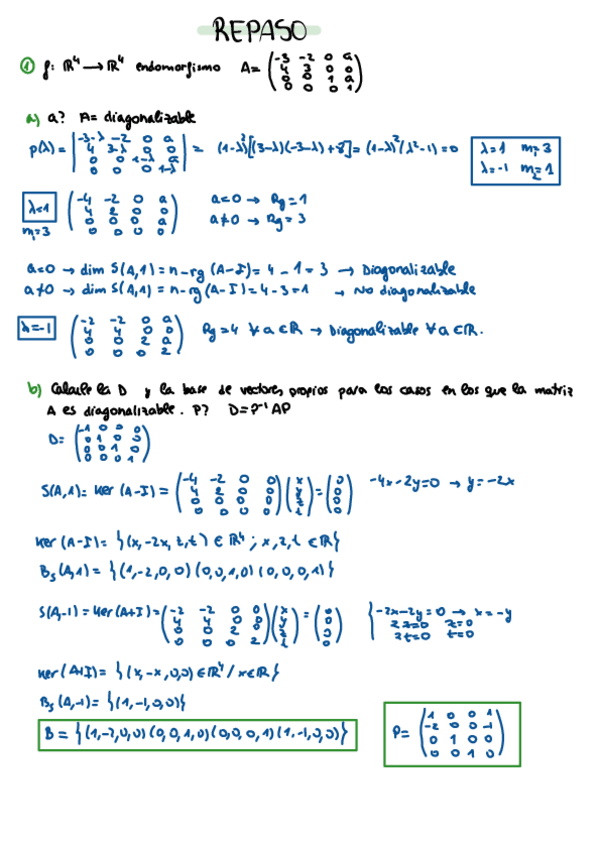 REPASO
① f: ℝ⁴ → ℝ⁴ endomorfismo A= (-3 -2 0 a / 4 3 0 0 / 0 0 1 a / 0 0 0 1)
a) a? A= diagonalizable
p(λ) = |-3-λ -2 0 a / 4 3-λ 0 0 / 0 0 1-λ a / 0 0 0 1-λ| = (1-λ)²[(3-λ)(-3-λ)+8] = (1-λ)²(λ²-1)=0
λ=1 m₁=3
λ=-1 m₂=1
λ=1 m₁=3 (-4 -2 0 a / 4 2 0 0 / 0 0 0 a / 0 0 0 0)
a=0 → Rg=1
a≠0 → Rg=3
a=0 → dim S(A,1) = n-rg (A-I)= 4-1=3 → Diagonalizable
a≠0 → dim S(A,1) = n-rg(A-I)=4-3=1 → No diagonalizable
λ=-1 (-2 -2 0 a / 4 4 0 0 / 0 0 2 a / 0 0 0 2) Rg=4 ∀ a∈ℝ → Diagonalizable ∀ a∈ℝ.
b) Calcule la D y la base de vectores propios para los casos en los que la matriz
A es diagonalizable. P? D=P⁻¹AP
D= (-1 0 0 0 / 0 1 0 0 / 0 0 1 0 / 0 0 0 1)
S(A,1)= ker (A-I) = (-4 -2 0 0 / 4 2 0 0 / 0 0 0 0 / 0 0 0 0)(x / y / z / t)=(0 / 0 / 0 / 0) -4x-2y=0 → y=-2x
ker(A-I)= {(x,-2x,z,t) ∈ ℝ⁴ ; x,z,t ∈ℝ}
Bs(A,1) = {(1,-2,0,0)(0,0,1,0)(0,0,0,1)}
S(A,-1) = ker(A+I)=(-2 -2 0 0 / 4 4 0 0 / 0 0 2 0 / 0 0 0 2)(x / y / z / t)=(0 / 0 / 0 / 0)
{-2x-2y=0 → x=-y
2z=0 z=0
2t=0 t=0
ker(A+I)= {(x,-x,0,0)∈ℝ⁴/ x∈ℝ}
Bs(A,-1)= {(1,-1,0,0)}
B = {(1,-2,0,0)(0,0,1,0)(0,0,0,1)(1,-1,0,0)}
P= (1 0 0 1 / -2 0 0 -1 / 0 1 0 0 / 0 0 1 0)